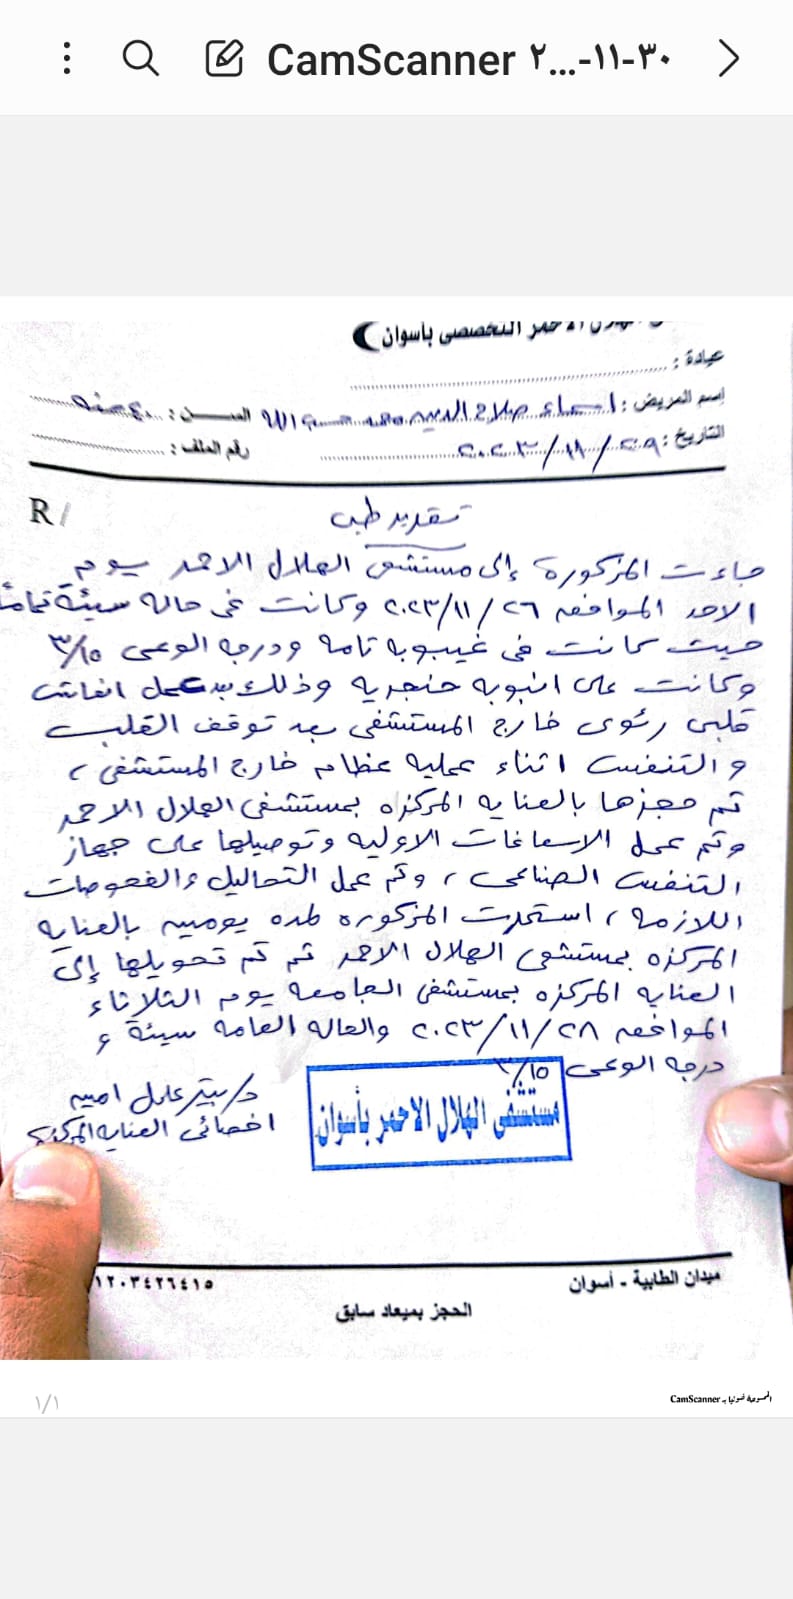 CamScanner ٢...-١١-٣٠
الهلال الاحمر التخصصى بأسوان
عيادة :
إسم المريض : اسماء صلاح الدين محمد حسب الله السن : ٤٠ سنه
التاريخ : ٢٠٢٣/١١/٢٩ رقم الملف :
R/
تقرير طبى
جاءت المذكورة إلى مستشفى الهلال الاحمر يوم
الاحد الموافق ٢٠٢٣/١١/٢٦ وكانت فى حاله سيئة تماماً
حيث كانت فى غيبوبه تامه ودرجه الوعى ٣/١٥
وكانت على انبوبه حنجريه وذلك بعد عمل انعاش
قلبى رئوى خارج المستشفى بعد توقف القلب
و التنفس اثناء عمليه عظام خارج المستشفى ،
تم حجزها بالعنايه المركزه بمستشفى الهلال الاحمر
وتم عمل الاسعافات الاوليه وتوصيلها على جهاز
التنفس الصناعى ، وتم عمل التحاليل والفحوصات
اللازمه ، استمرت المذكوره لمده يومين بالعنايه
المركزه بمستشفى الهلال الاحمر ثم تم تحويلها إلى
العنايه المركزه بمستشفى الجامعه يوم الثلاثاء
الموافق ٢٠٢٣/١١/٢٨ والحاله العامه سيئة و
درجه الوعى ٣/١٥
د/ بيتر عادل امين
اخصائى العنايه المركزة
مستشفى الهلال الاحمر بأسوان
ميدان الطابية - أسوان ١٢٠٣٤٢٦٤١٥
الحجز بميعاد سابق
١/١
الممسوحة ضوئيا بـ CamScanner